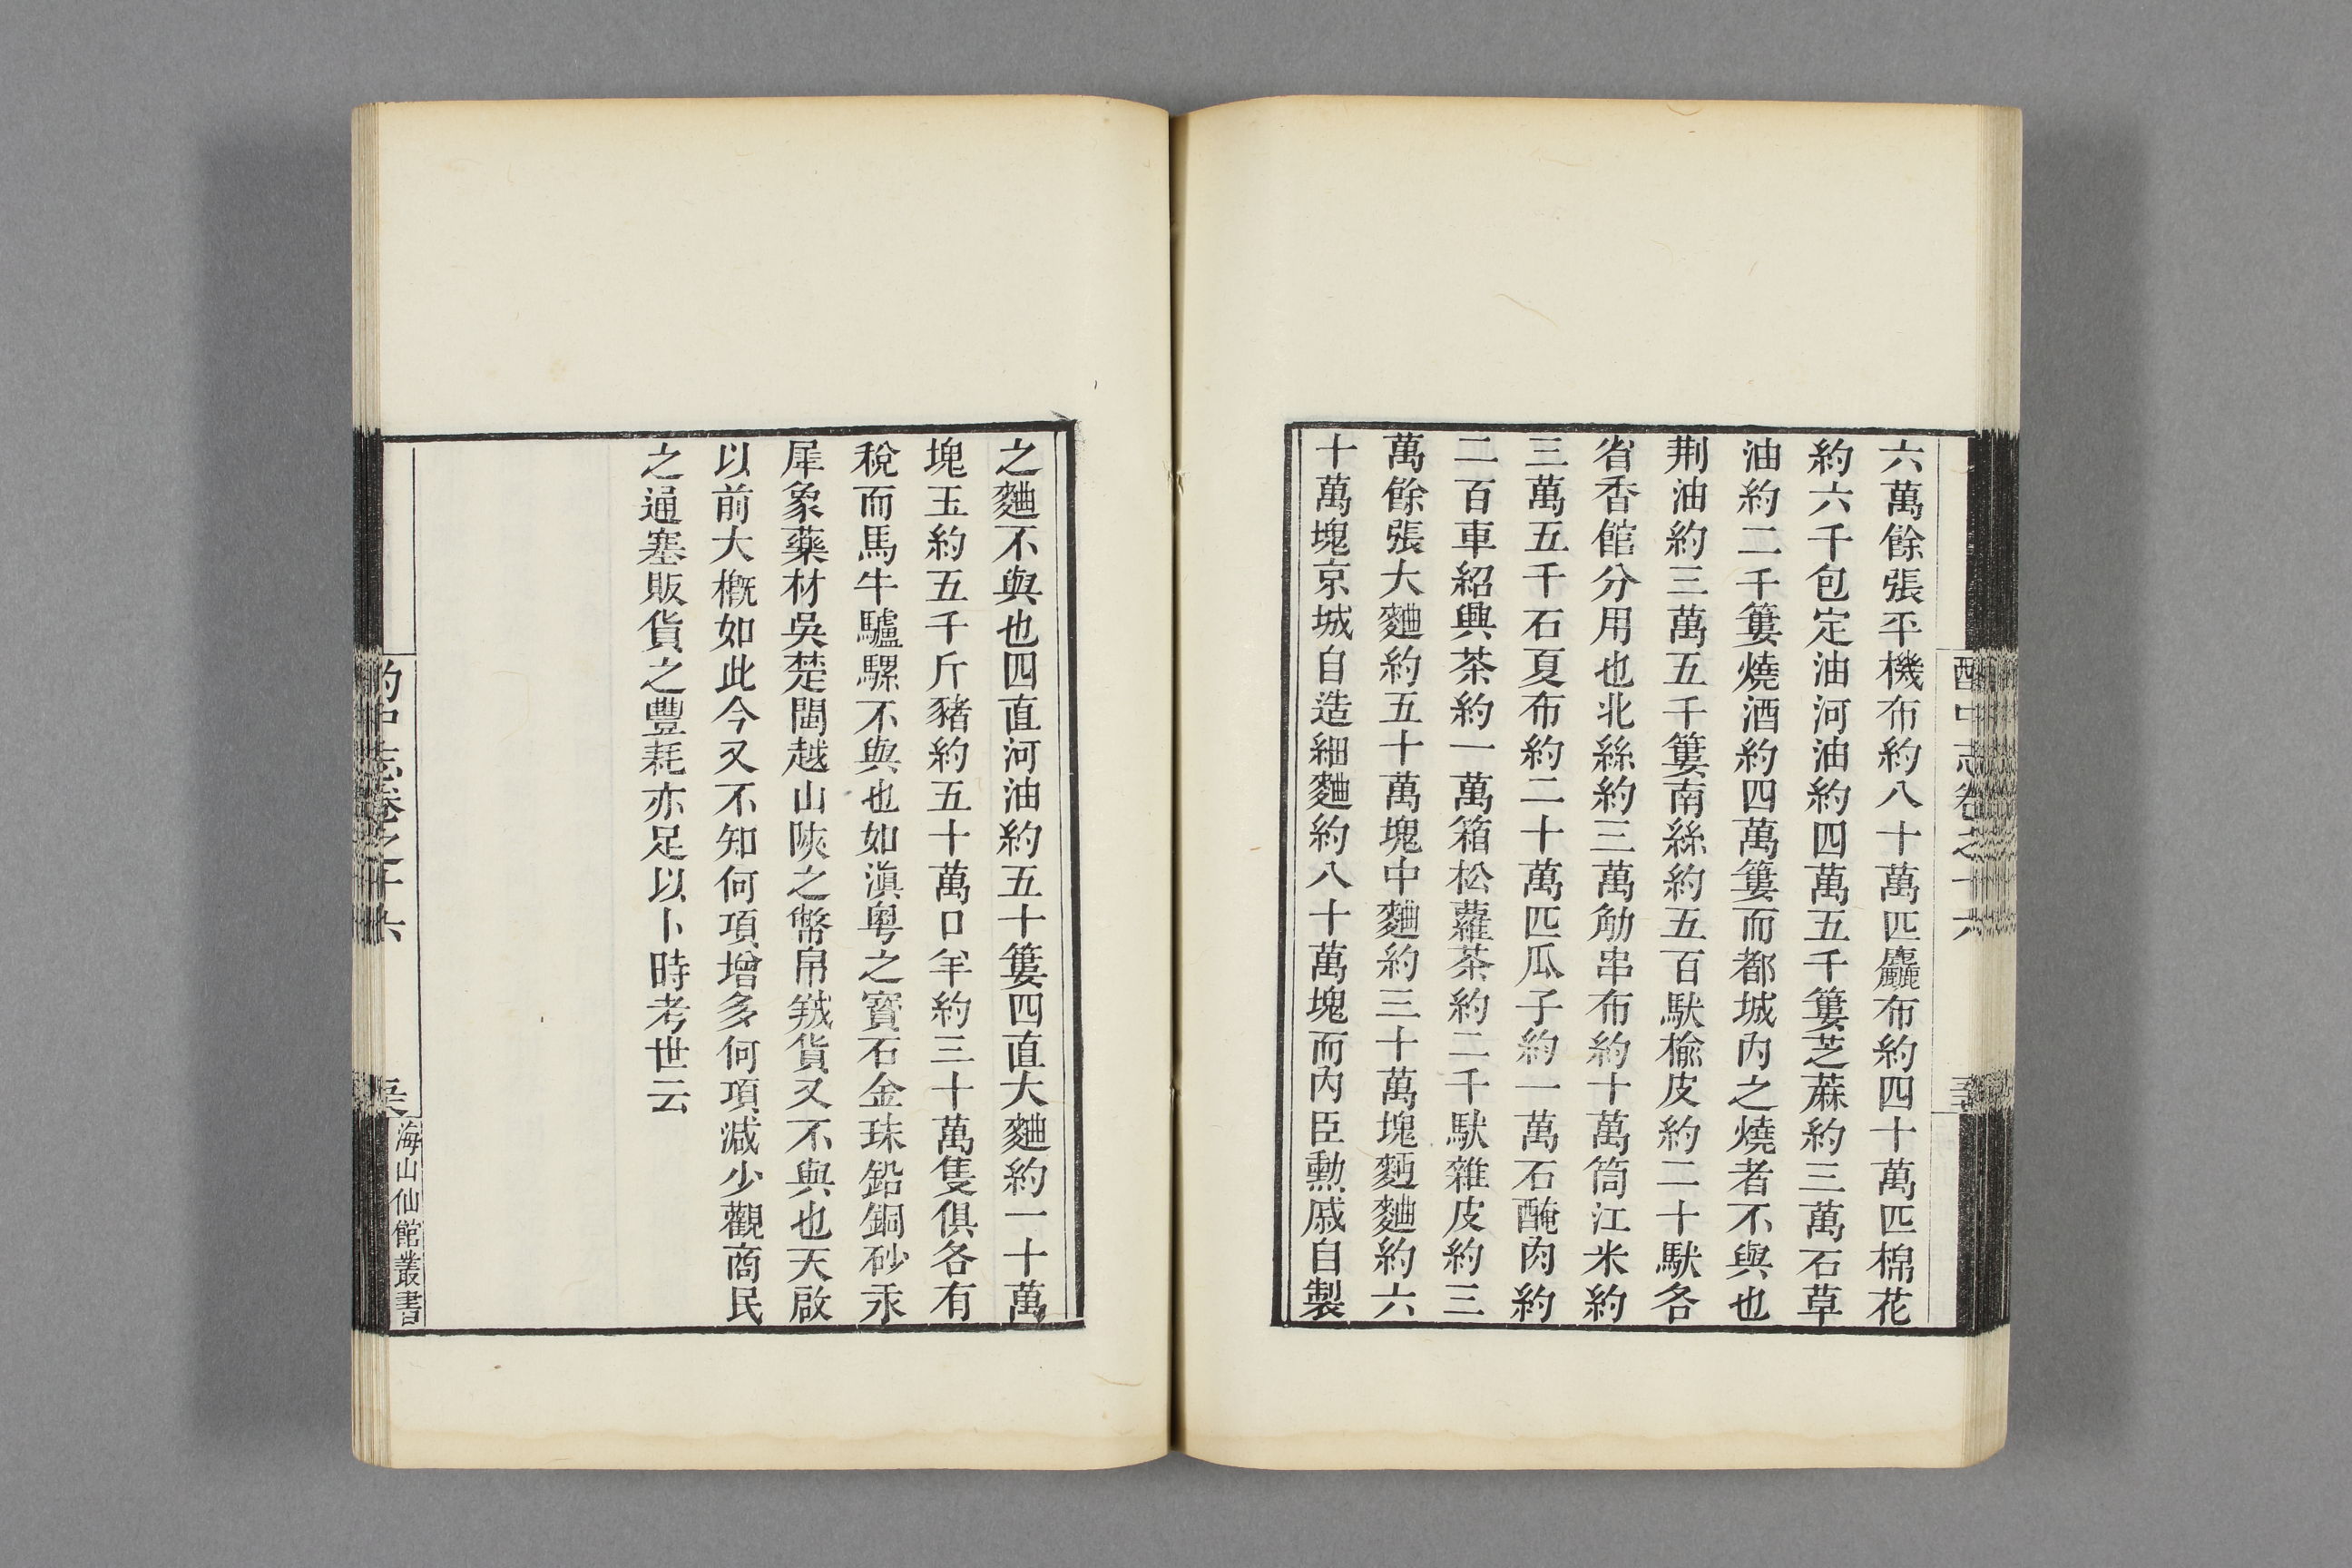 酌中志卷之十六
六萬餘張平機布約八十萬匹麤布約四十萬匹棉花
約六千包定油河油約四萬五千簍芝蔴約三萬石草
油約二千簍燒酒約四萬簍而都城內之燒者不與也
荆油約三萬五千簍南絲約五百馱榆皮約二十馱各
省香館分用也北絲約三萬觔串布約十萬筒江米約
三萬五千石夏布約二十萬匹瓜子約一萬石醃肉約
二百車紹興茶約一萬箱松蘿茶約二千馱雜皮約三
萬餘張大麯約五十萬塊中麯約三十萬塊麪麯約六
十萬塊京城自造細麯約八十萬塊而內臣勳戚自製
之麯不與也四直河油約五十簍四直大麯約一十萬
塊玉約五千斤豬約五十萬口羊約三十萬隻俱各有
稅而馬牛驢騾不與也如滇粵之寶石金珠鉛銅砂汞
犀象藥材吳楚閩越山陝之幣帛羢貨又不與也天啟
以前大概如此今又不知何項增多何項減少觀商民
之通塞販貨之豐耗亦足以卜時考世云
酌中志卷之十六
海山仙館叢書